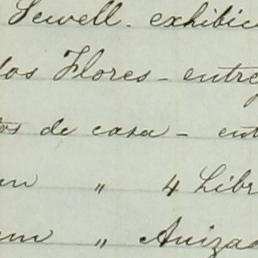 Sewell. exhibic
los Flores - entre
tos de casa - ent
en " 4 Libr
um " Avizad